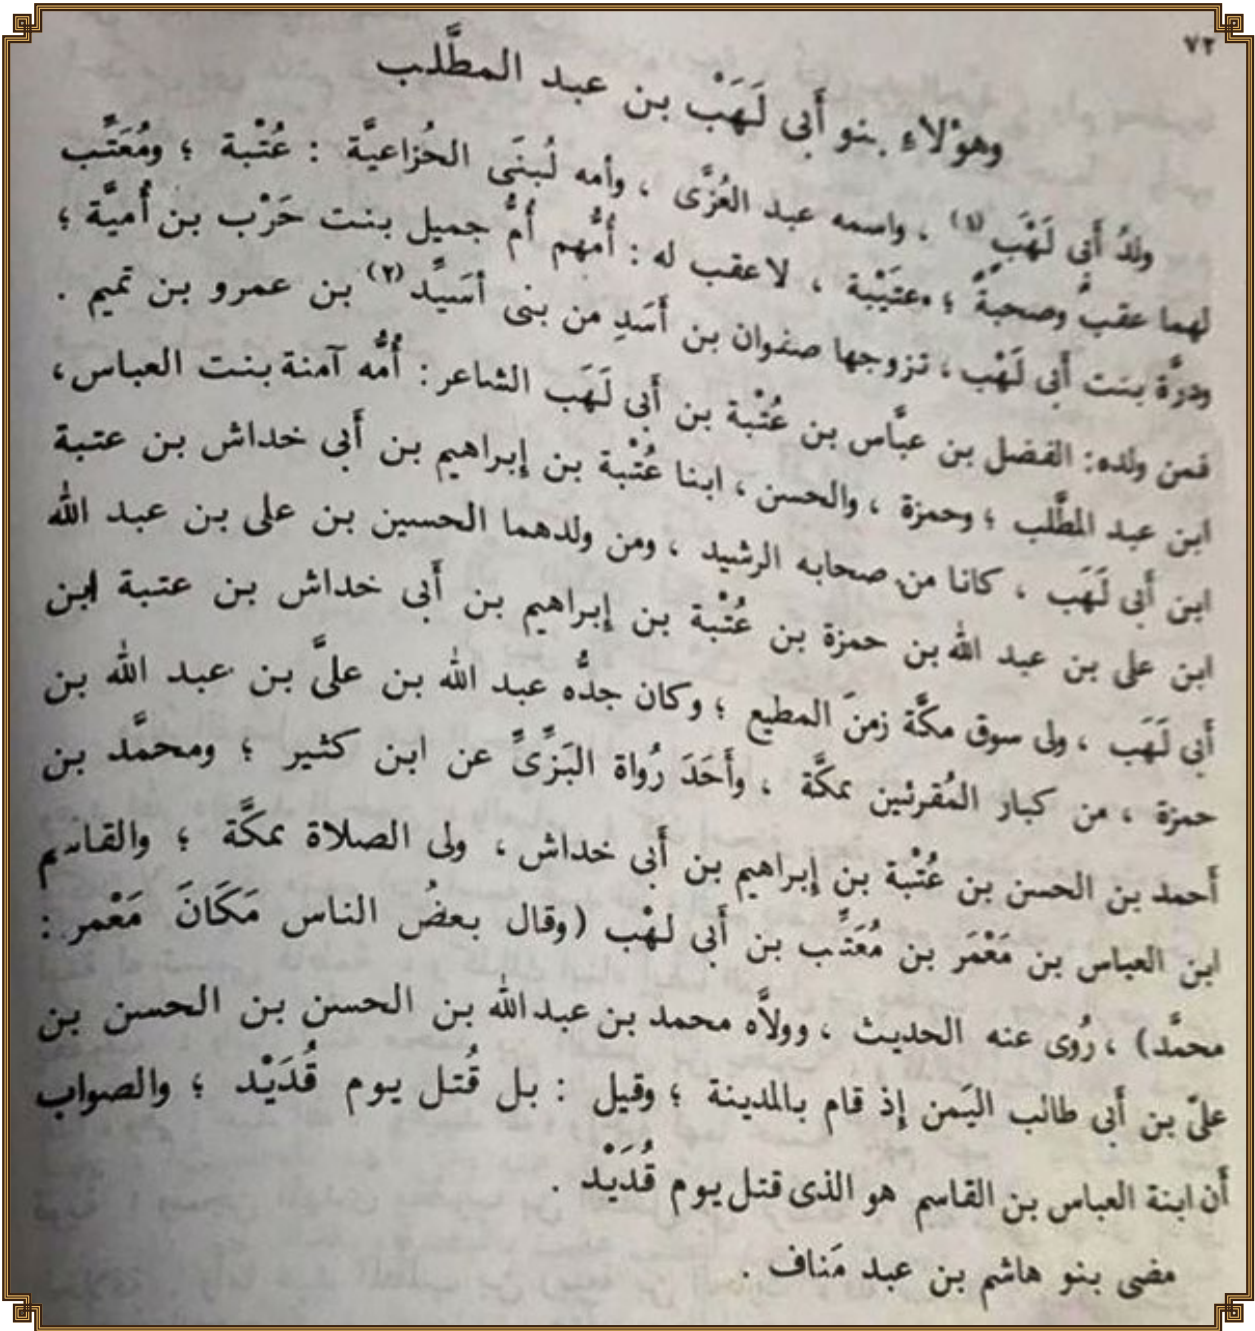 ٧٢
وهؤلاء بنو أبى لَهَبْ بن عبد المطَّلب
ولدُ أبى لَهَْب (١) ، واسمه عبد العُزَّى ، وأمه لُبنَى الخُزاعيَّة : عُتْبة ؛ ومُعَتِّب
لهما عقبٌ وصحبةٌ ؛ وعتَيْبة ، لاعقب له : أمُّهم أمُّ جميل بنت حَرْب بن أميَّة ؛
ودرَّة بنت أبى لَهْب ، تزوجها صفوان بن أسَدِ من بنى أسَيِّد (٢) بن عمرو بن تميم .
فمن ولده : الفضل بن عبَّاس بن عُتْبة بن أبى لَهَب الشاعر : أمُّه آمنة بنت العباس ،
ابن عبد المطَّلب ؛ وحمزة ، والحسن ، ابنا عُتْبة بن إبراهيم بن أبى خداش بن عتبة
ابن أبى لَهَب ، كانا من صحابه الرشيد ، ومن ولدهما الحسين بن على بن عبد الله
ابن على بن عبد الله بن حمزة بن عُتْبة بن إبراهيم بن أبى خداش بن عتبة ابن
أبى لَهَب ، ولى سوق مكَّة زمنَ المطيع ؛ وكان جدُّه عبد الله بن علىَّ بن عبد الله بن
حمزة ، من كبار المُقرئين بمكَّة ، وأَحَدَ رُواة البَزِّىِّ عن ابن كثير ؛ ومحمَّد بن
أحمد بن الحسن بن عُتْبة بن إبراهيم بن أبى خداش ، ولى الصلاة بمكَّة ؛ والقاسم
ابن العباس بن مَعْمَر بن مُعَتِّب بن أبى لهْب (وقال بعضُ الناس مَكَانَ مَعْمر :
محمَّد) ، رُوى عنه الحديث ، وولاَّه محمد بن عبدالله بن الحسن بن الحسن بن
علىّ بن أبى طالب اليَمن إذ قام بالمدينة ؛ وقيل : بل قُتل يوم قُدَيْد ؛ والصواب
أن ابنة العباس بن القاسم هو الذى قتل يوم قُدَيْد .
مضى بنو هاشم بن عبد مَناف .